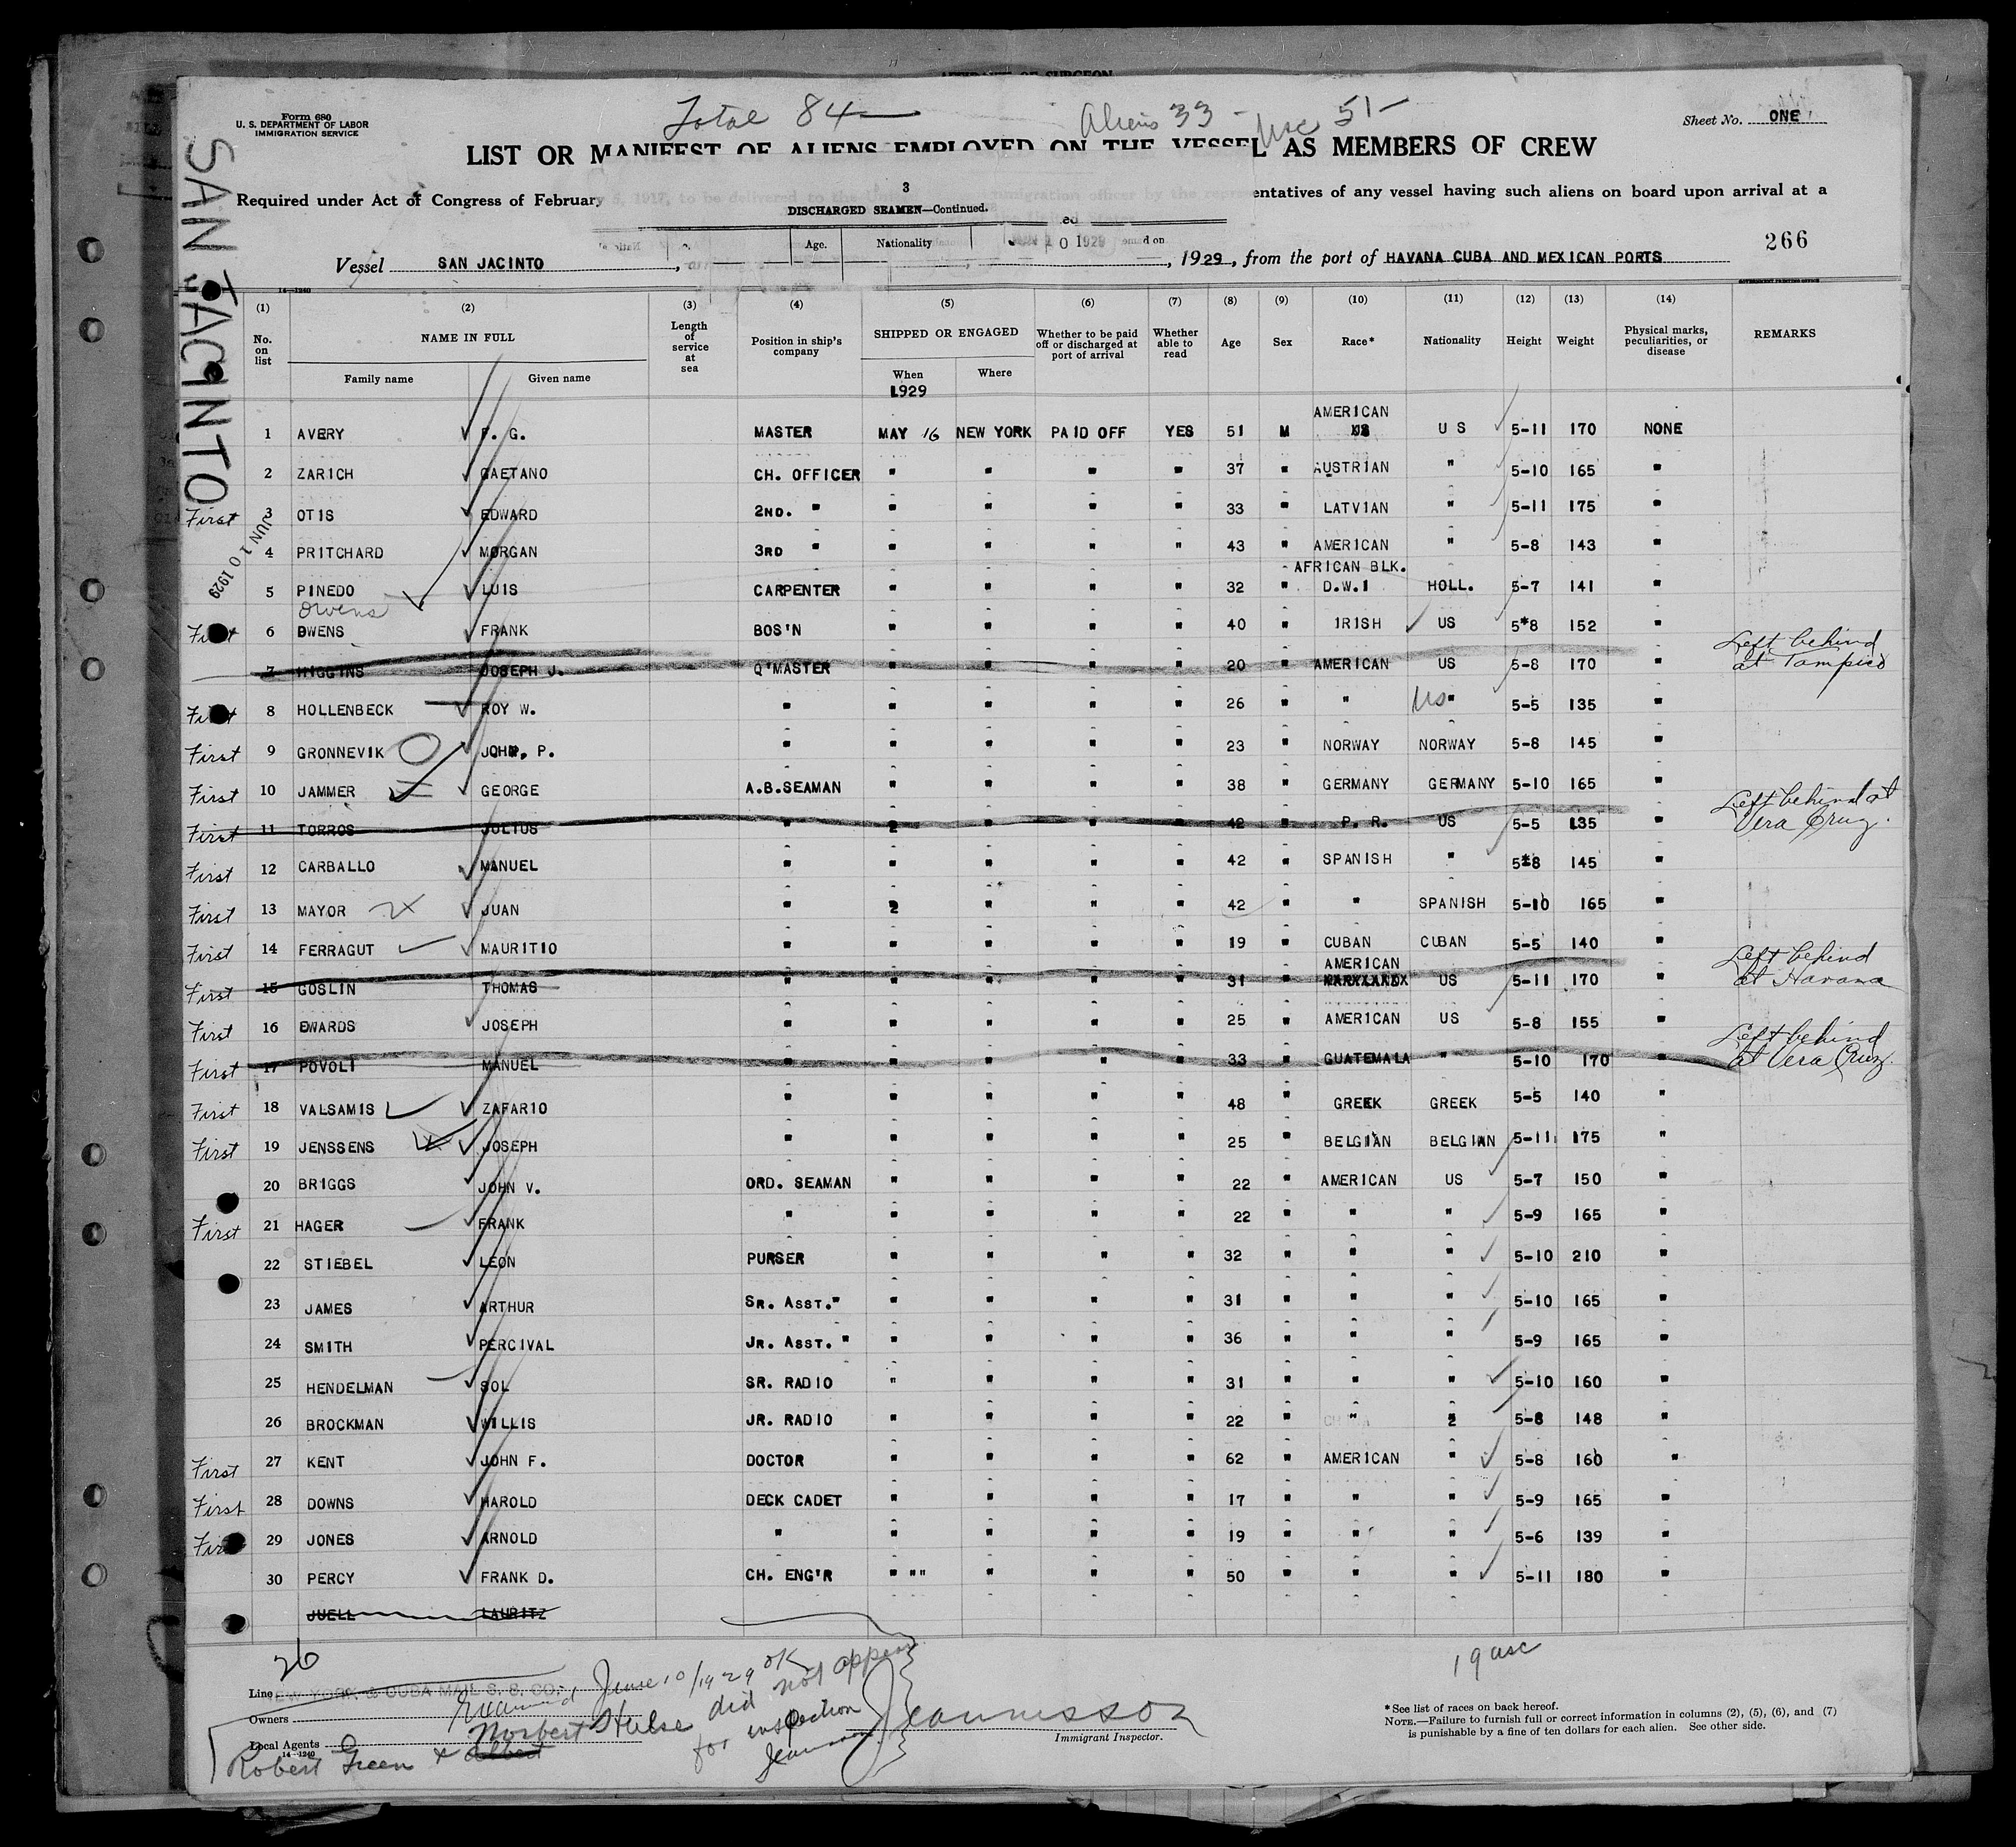 Total 84— Aliens 33 - usc 51-
Form 680
U. S. DEPARTMENT OF LABOR
IMMIGRATION SERVICE
Sheet No. ONE
LIST OR MANIFEST OF ALIENS EMPLOYED ON THE VESSEL AS MEMBERS OF CREW
Required under Act of Congress of February 5, 1917, to be delivered to the immigration officer by the representatives of any vessel having such aliens on board upon arrival at a
3
DISCHARGED SEAMEN—Continued.
Age. Nationality
JUN 10 1929
266
Vessel SAN JACINTO, 1929, from the port of HAVANA CUBA AND MEXICAN PORTS
SAN JACINTO
JUN 10 1929
(1) (2) (3) (4) (5) (6) (7) (8) (9) (10) (11) (12) (13) (14)
No. on list NAME IN FULL Family name Given name Length of service at sea Position in ship's company SHIPPED OR ENGAGED When Where Whether to be paid off or discharged at port of arrival Whether able to read Age Sex Race* Nationality Height Weight Physical marks, peculiarities, or disease REMARKS
1929
1 AVERY P. G. MASTER MAY 16 NEW YORK PAID OFF YES 51 M AMERICAN U S 5-11 170 NONE
2 ZARICH GAETANO CH. OFFICER " " " " 37 " AUSTRIAN " 5-10 165 "
First 3 OTIS EDWARD 2ND. " " " " " 33 " LATVIAN " 5-11 175 "
4 PRITCHARD MORGAN 3RD " " " " " 43 " AMERICAN " 5-8 143 "
5 PINEDO LUIS CARPENTER " " " " 32 " AFRICAN BLK. D.W.I HOLL. 5-7 141 "
Owens
First 6 DWENS FRANK BOS'N " " " " 40 " IRISH US 5*8 152 "
7 HIGGINS JOSEPH J. Q'MASTER " " " " 20 " AMERICAN US 5-8 170 " Left behind at Tampico
First 8 HOLLENBECK ROY W. " " " " " 26 " " US " 5-5 135 "
First 9 GRONNEVIK JOHN, P. " " " " " 23 " NORWAY NORWAY 5-8 145 "
First 10 JAMMER GEORGE A.B.SEAMAN " " " " 38 " GERMANY GERMANY 5-10 165 "
First 11 TORROS JULIUS " 2 " " " 42 " P. R. US 5-5 135 " Left behind at Vera Cruz.
First 12 CARBALLO MANUEL " " " " " 42 " SPANISH " 5*8 145 "
First 13 MAYOR JUAN " 2 " " " 42 " " SPANISH 5-10 165 "
First 14 FERRAGUT MAURITIO " " " " " 19 " CUBAN CUBAN 5-5 140 "
First 15 GOSLIN THOMAS " " " " " 31 " AMERICAN US 5-11 170 " Left behind at Havana
First 16 EWARDS JOSEPH " " " " " 25 " AMERICAN US 5-8 155 "
First 17 POVOLI MANUEL " " " " " 33 " GUATEMALA " 5-10 170 " Left behind at Vera Cruz.
First 18 VALSAMIS ZAFARIO " " " " " 48 " GREEK GREEK 5-5 140 "
First 19 JENSSENS JOSEPH " " " " " 25 " BELGIAN BELGIAN 5-11 175 "
20 BRIGGS JOHN V. ORD. SEAMAN " " " " 22 " AMERICAN US 5-7 150 "
First 21 HAGER FRANK " " " " " 22 " " " 5-9 165 "
22 STIEBEL LEON PURSER " " " " 32 " " " 5-10 210 "
23 JAMES ARTHUR SR. ASST. " " " " " 31 " " " 5-10 165 "
24 SMITH PERCIVAL JR. ASST. " " " " " 36 " " " 5-9 165 "
25 HENDELMAN SOL SR. RADIO " " " " 31 " " " 5-10 160 "
26 BROCKMAN WILLIS JR. RADIO " " " " 22 " " 2 5-8 148 "
First 27 KENT JOHN F. DOCTOR " " " " 62 " AMERICAN " 5-8 160 "
First 28 DOWNS HAROLD DECK CADET " " " " 17 " " " 5-9 165 "
First 29 JONES ARNOLD " " " " " 19 " " " 5-6 139 "
30 PERCY FRANK D. CH. ENG'R " " " " " 50 " " " 5-11 180 "
JUELL LAURITZ
26
19 usc
Line NEW YORK & CUBA MAIL S. S. CO.
Examined June 10/1929 OK
Owners
Local Agents
14—1240
Robert Green & Albert Norbert Hulse did not appear for inspection
Jeannisson
Jeannisson
Immigrant Inspector.
*See list of races on back hereof.
NOTE.—Failure to furnish full or correct information in columns (2), (5), (6), and (7)
is punishable by a fine of ten dollars for each alien. See other side.